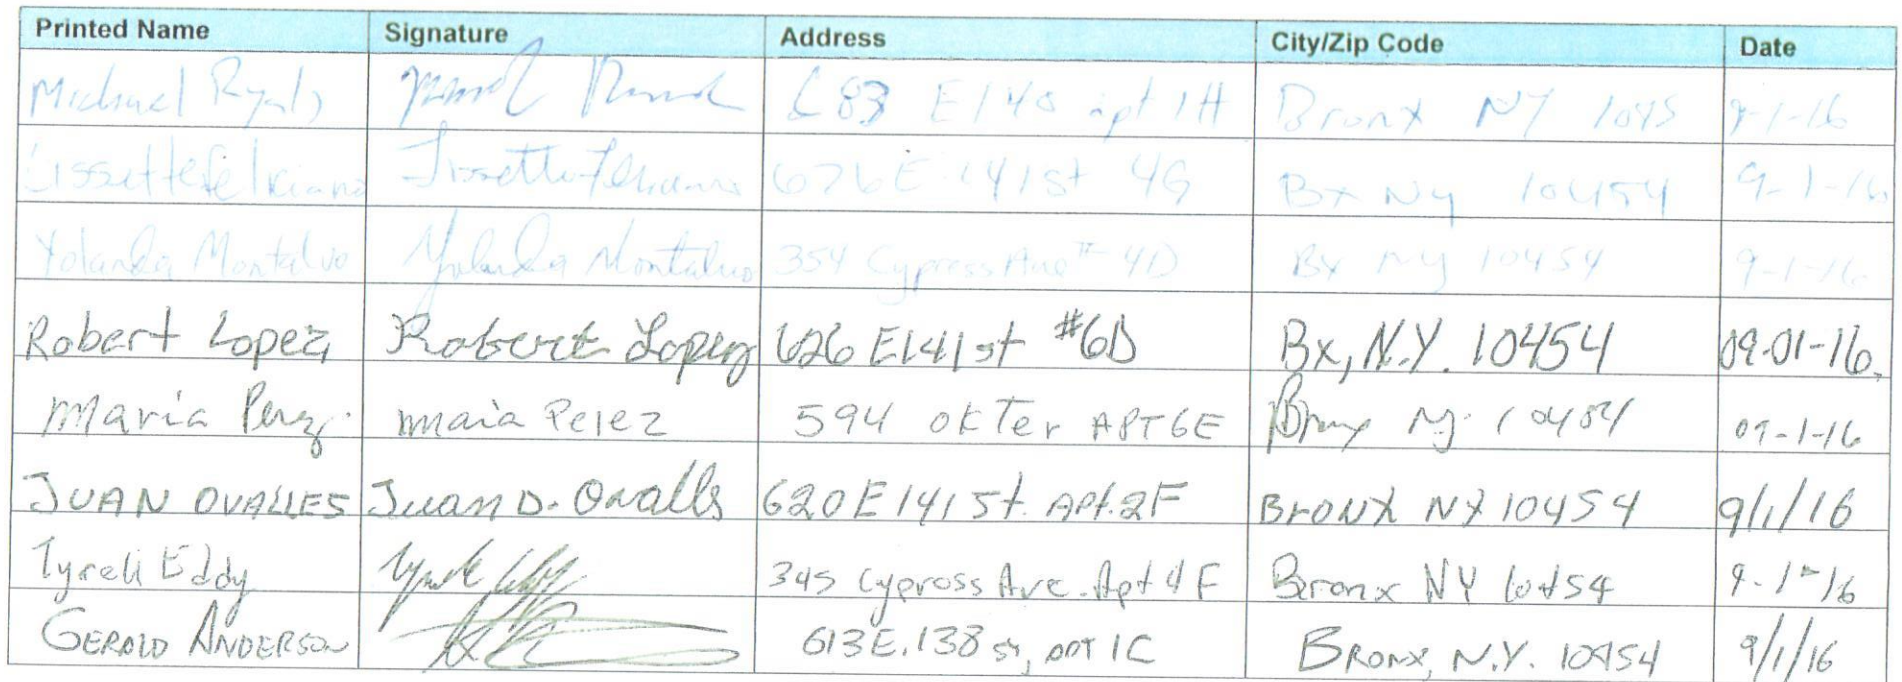 Printed Name Signature Address City/Zip Code Date
Michael 683 E 140 apt 1H Bronx NY 1045 9-1-16
Lissette Feliciano Lissette Feliciano 626 E 141 st 4G Bx Ny 10454 9-1-16
Yolanda Montalvo Yolanda Montalvo 354 Cypress Ave # 4D Bx Ny 10454 9-1-16
Robert Lopez, Robert Lopez 626 E 141 st #6D Bx, N.Y. 10454 09-01-16.
Maria Perez Maia Perez 594 APT 6E Bronx Ny 10454 09-1-16
JUAN OVALLES Juan D. Ovalls 620 E 141 St. APt. 2F BRONX NY 10454 9/1/16
Tyrell Eddy 345 Cypross Ave. Apt 4F Bronx NY 10454 9-1-16
GEROLD ANDERSON 613 E. 138 st, apt 1C BRONX, N.Y. 10454 9/1/16